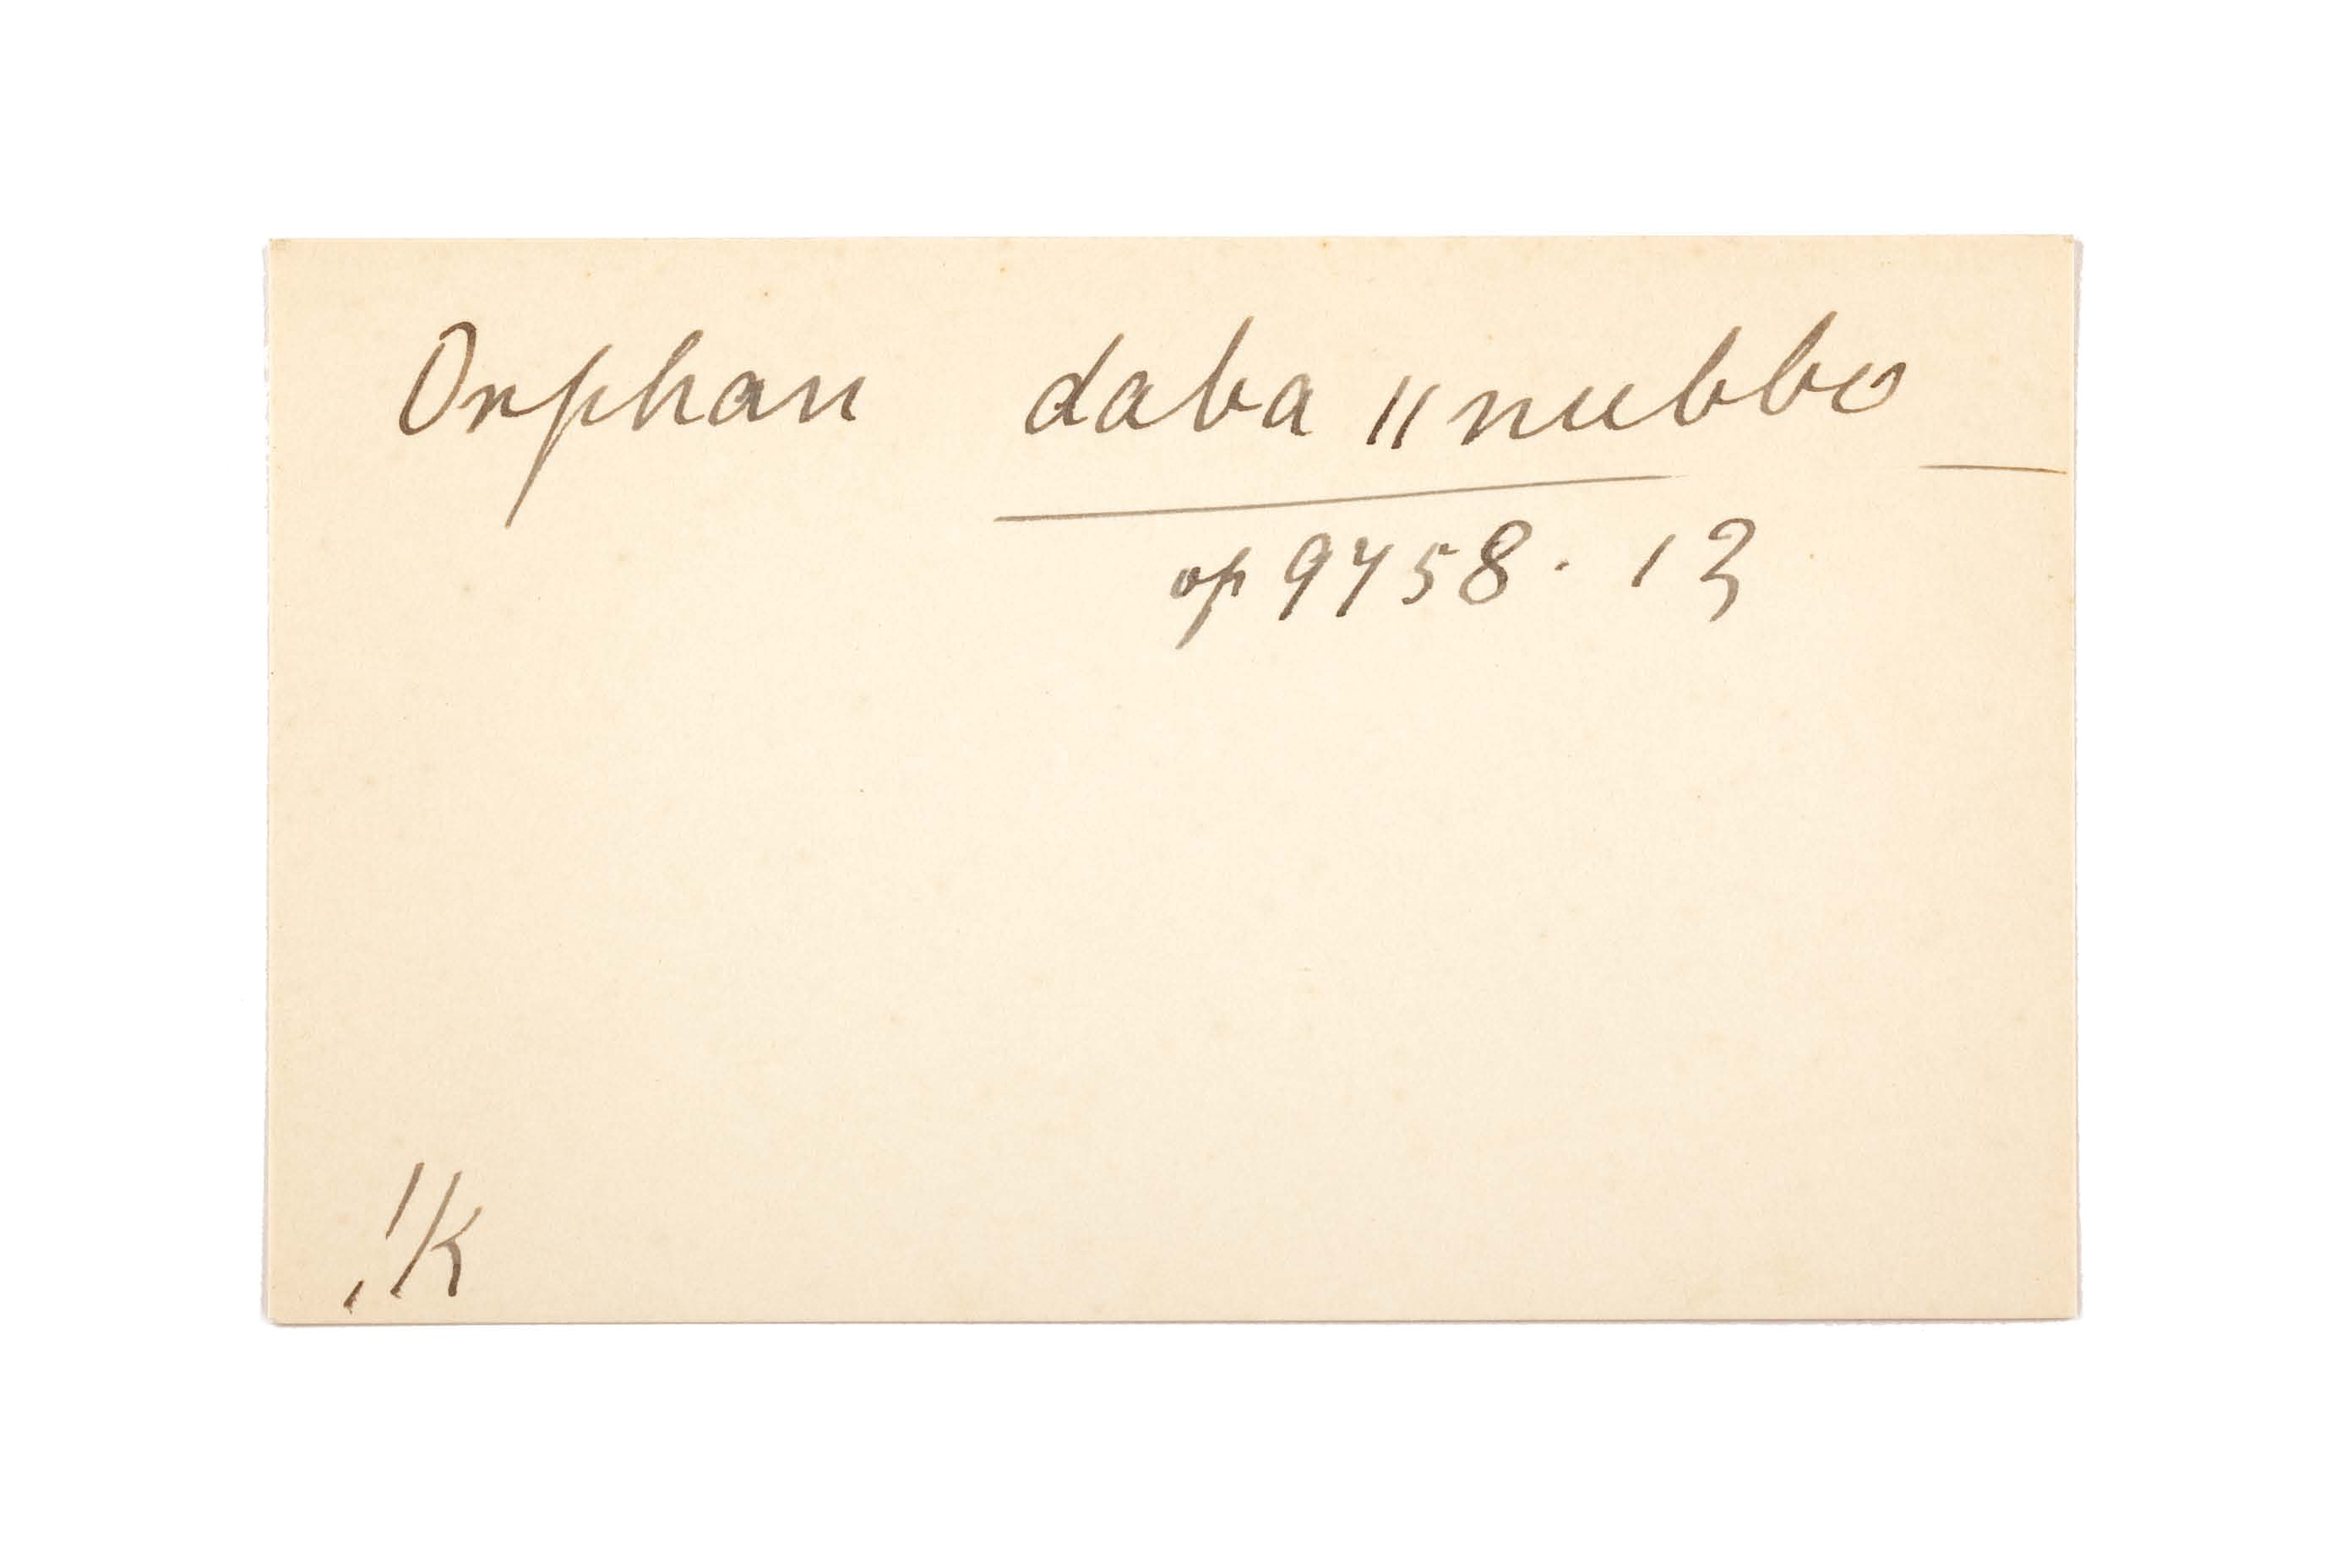 Orphan daba ǁnubbo
op 9458. 13
!k